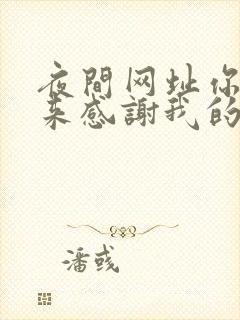 夜間网址你
来感謝我的
潘彧